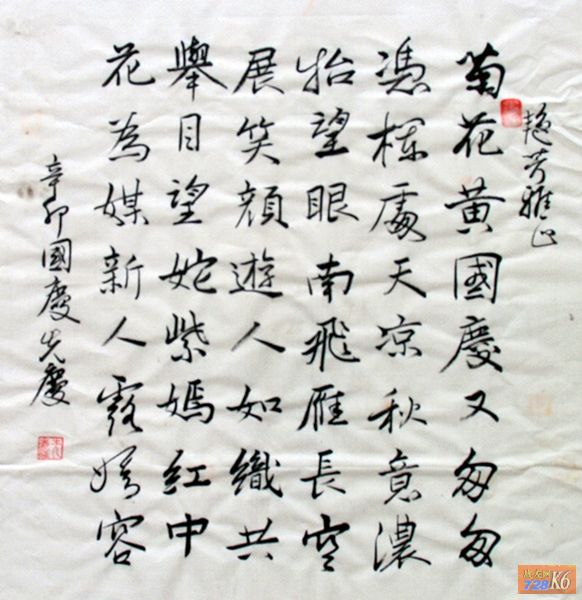 艳芳雅正
菊花黄國慶又匆匆
憑欄處天凉秋意濃
抬望眼南飛雁長空
展笑顔遊人如織共
舉目望姹紫嫣紅中
花為媒新人露嬌容
辛卯國慶先慶
战友网
728K6